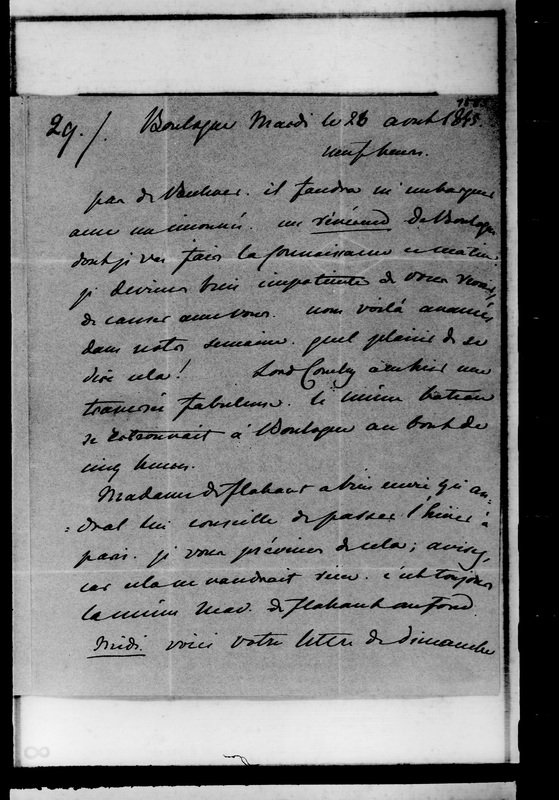 29./. Boulogne Mardi le 26 août 1845.
neuf heures.
pas de Vanhoes. il faudra m'embarquer
avec un inconnu. un révérend de Boulogne
dont je vais faire la connaissance ce matin.
je deviens bien impatiente de vous revoir,
de causer avec vous. nous voilà avancés
dans notre semaine. quel plaisir de se
dire cela! Lord Cowley a eu hier une
traversée fabuleuse. le même bateau
se retrouvait à Boulogne au bout de
cinq heures.
Madame de flahaut a bien envie qu'an=
=dral lui conseille de passer l'hiver à
paris. je vous préviens de cela; avisez,
car cela ne vaudrait rien. c'est toujours
la même Mad. de flahaut au fond.
Midi. voici votre lettre de dimanche